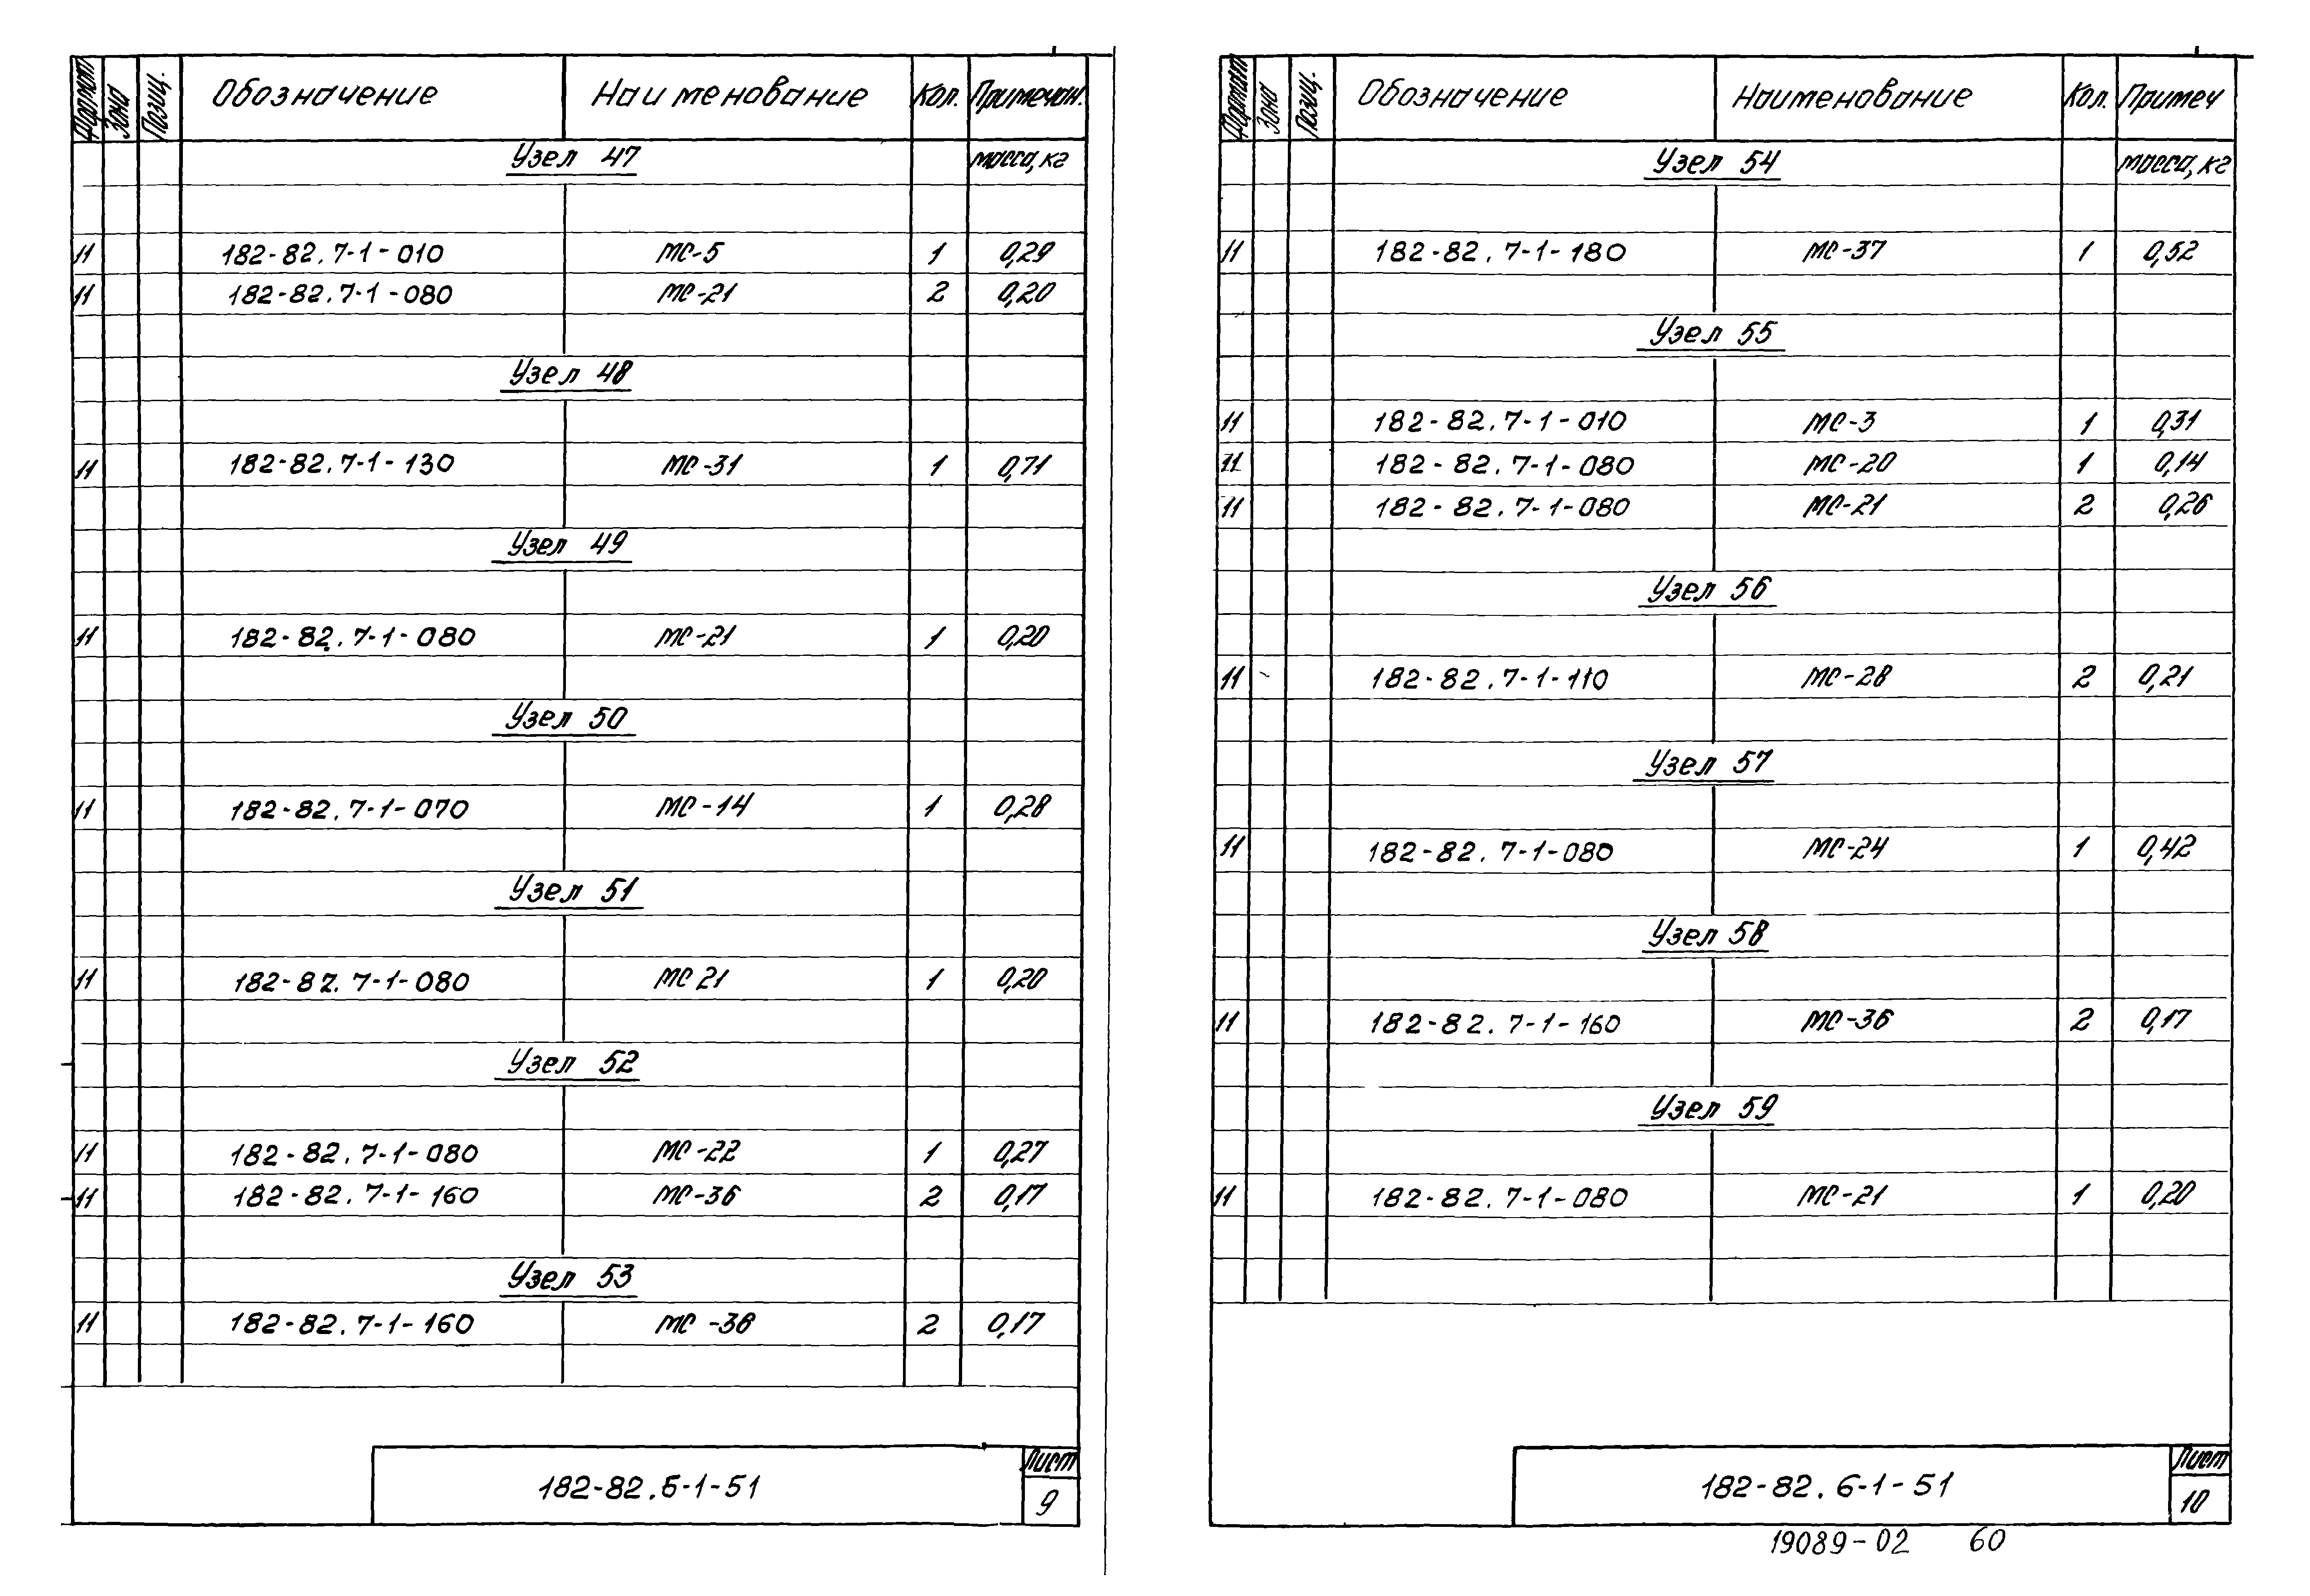 Формат Зона Позиц. Обозначение Наименование Кол. Примечан.
Узел 47 масса, кг
11 182-82.7-1-010 МС-5 1 0,29
11 182-82.7-1-080 МС-21 2 0,20
Узел 48
11 182-82.7-1-130 МС-31 1 0,71
Узел 49
11 182-82.7-1-080 МС-21 1 0,20
Узел 50
11 182-82.7-1-070 МС-14 1 0,28
Узел 51
11 182-82.7-1-080 МС 21 1 0,20
Узел 52
11 182-82.7-1-080 МС-22 1 0,27
11 182-82.7-1-160 МС-36 2 0,17
Узел 53
11 182-82.7-1-160 МС-36 2 0,17
182-82.6-1-51
Лист
9
Формат Зона Позиц. Обозначение Наименование Кол. Примеч
Узел 54 масса, кг
11 182-82.7-1-180 МС-37 1 0,52
Узел 55
11 182-82.7-1-010 МС-3 1 0,31
11 182-82.7-1-080 МС-20 1 0,14
11 182-82.7-1-080 МС-21 2 0,26
Узел 56
11 182-82.7-1-110 МС-28 2 0,21
Узел 57
11 182-82.7-1-080 МС-24 1 0,42
Узел 58
11 182-82.7-1-160 МС-36 2 0,17
Узел 59
11 182-82.7-1-080 МС-21 1 0,20
182-82.6-1-51
Лист
10
19089-02 60